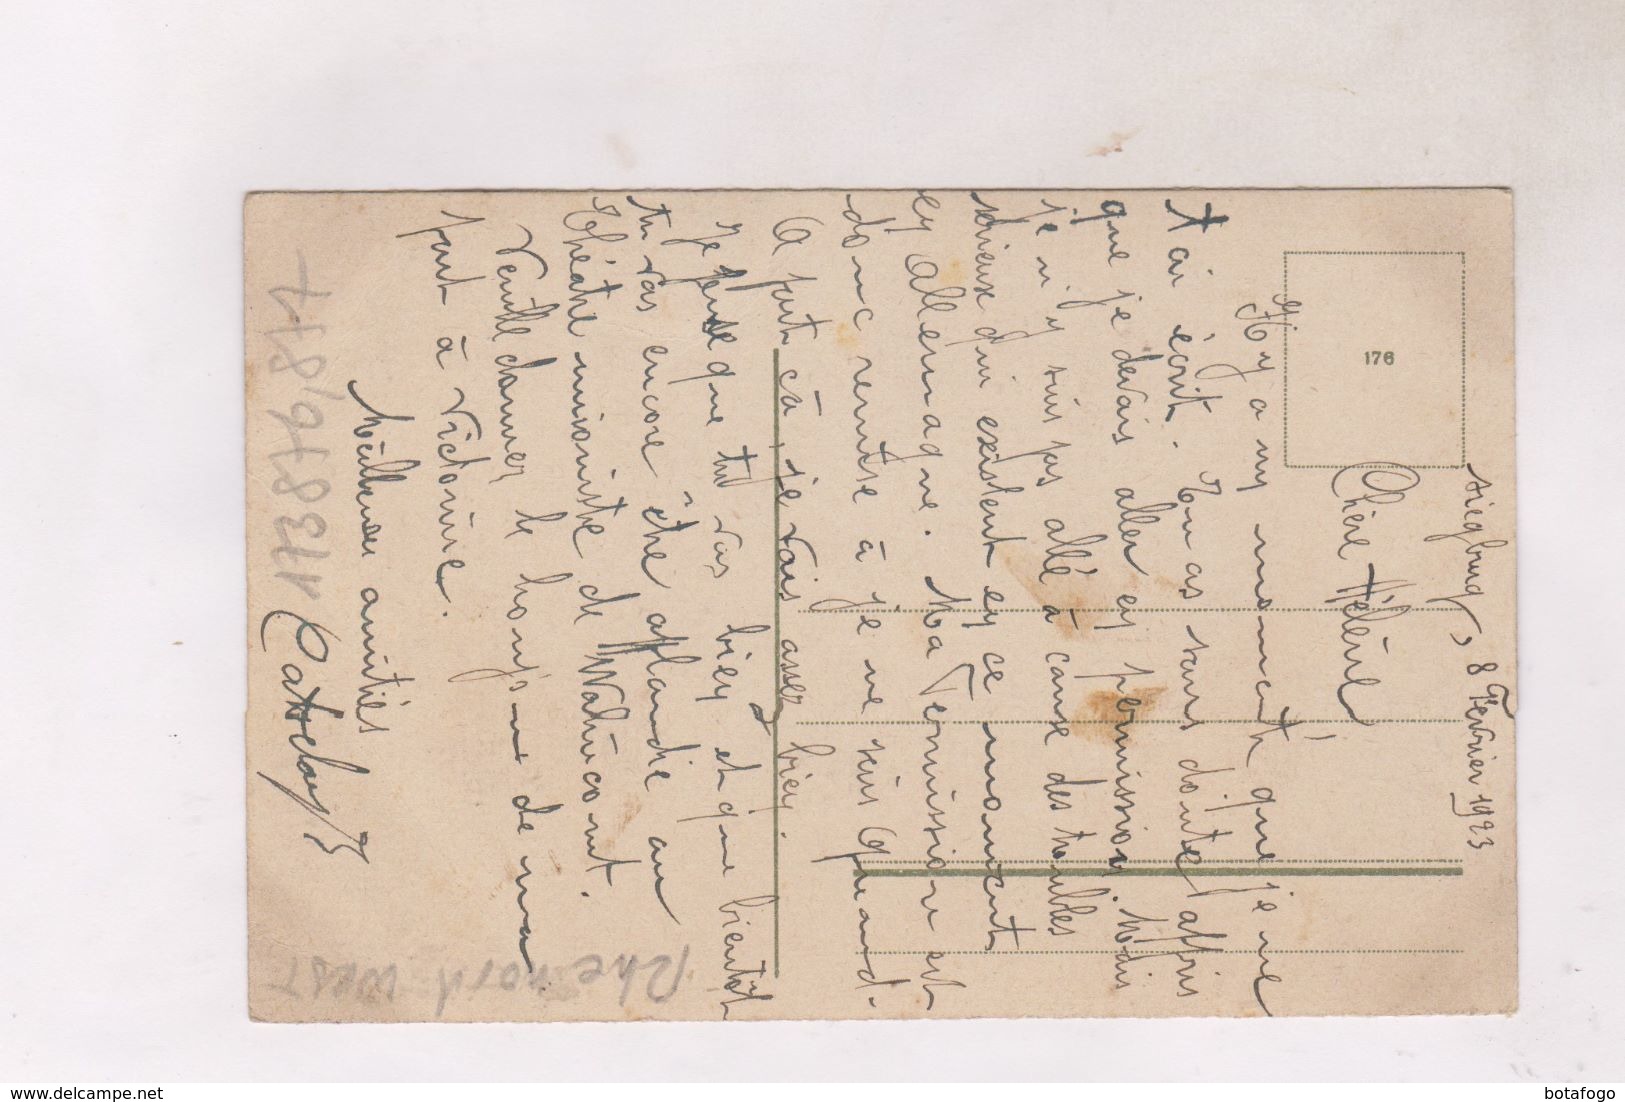 Siegburg, 8 Février 1923
Chère Hélène
Il y a un moment que je ne
t'ai écrit. Tu as sans doute appris
que je devais aller en permission. Mais
je n'y suis pas allé à cause des troubles
sérieuse qui existent en ce moment
en Allemagne. Ma Permission est
donc remise à je ne sais quand.
A part ça, je vais assez bien.
Je pense que tu vas bien et que bientôt
tu vas encore être applaudie au
Théâtre unioniste de
Veuille donner le bonjour de ma
part à Victorine.
Meilleures amitiés
176
Rhe nord West
173876/877
botafogo